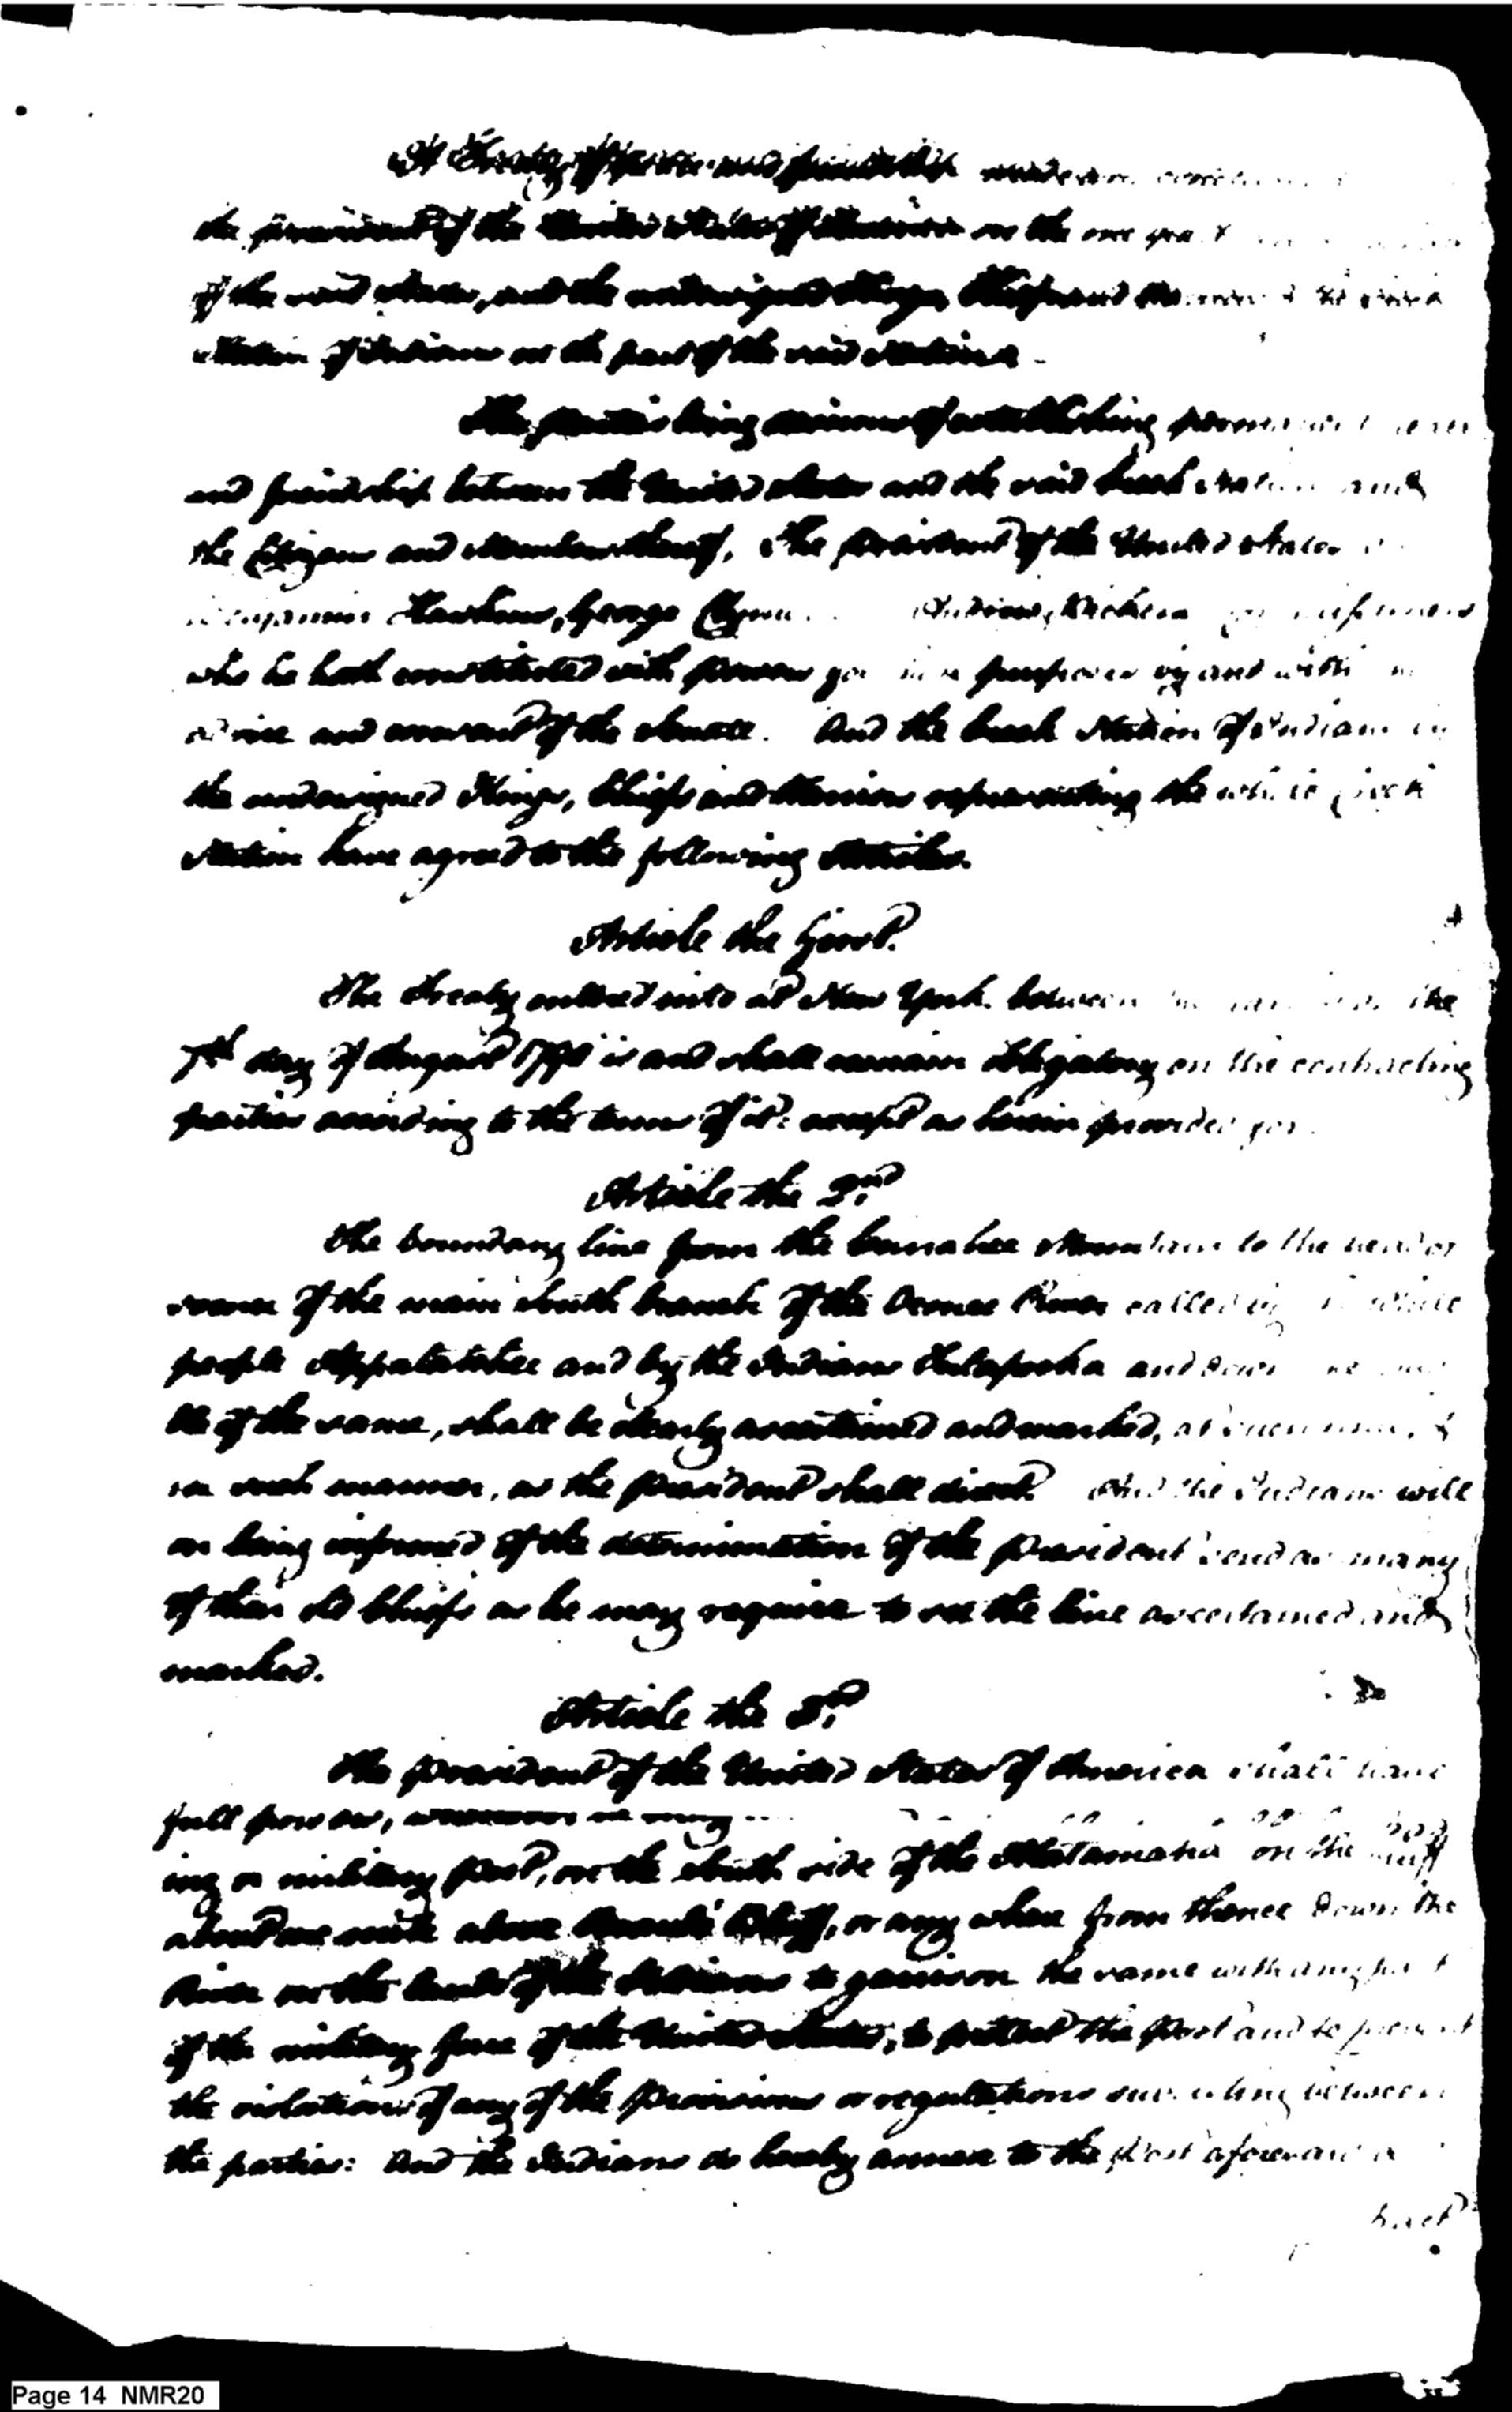 A Treaty of peace and friendship made and
the president of the United States of America on the one part
of the said States, and the undersigned Kings, Chiefs and
Nation of Indians on the part of the said Nation.
The parties being desirous of establishing permanent peace
and friendship between the United States and the said Creek Nation and
the Citizens and Members thereof, The President of the United States
Benjamin Hawkins, George Clymer Andrew Pickens
who he hath constituted with powers for these purposes by and with
advice and consent of the Senate. And the Creek Nation of Indians by
the undersigned Kings, Chiefs and Warriors representing the whole Creek
Nation have agreed to the following Articles.
Article the first.
The Treaty entered into at New York between the
7th day of August 1790 is and shall remain obligatory on the contracting
parties according to the terms of it: except as herein provided for.
Article the 2nd
The boundary line from the Currahee Mountain to the head or
source of the main South branch of the Oconee River called by the White
people Appalatchee and by the Indians Tulapocka and down
of the same, shall be clearly ascertained and marked, at such time, &
in such manner, as the president shall direct. And the Indians will
on being informed of the determination of the President send as many
of their old Chiefs as he may require to see the line ascertained and
marked.
Article the 3d
The president of the United States of America shall have
full power,
ing or military post, on the South side of the Alatamaha on the bluff
about one mile above Bluff, or any where from thence down the
River on the lands of the Indians to garrison the same with any part
of the military force of the United States, to protect the post and to prevent
the violation of any of the provisions or regulations subsisting between
the parties: And the Indians do hereby annex to the post aforesaid a
tract
Page 14 NMR20